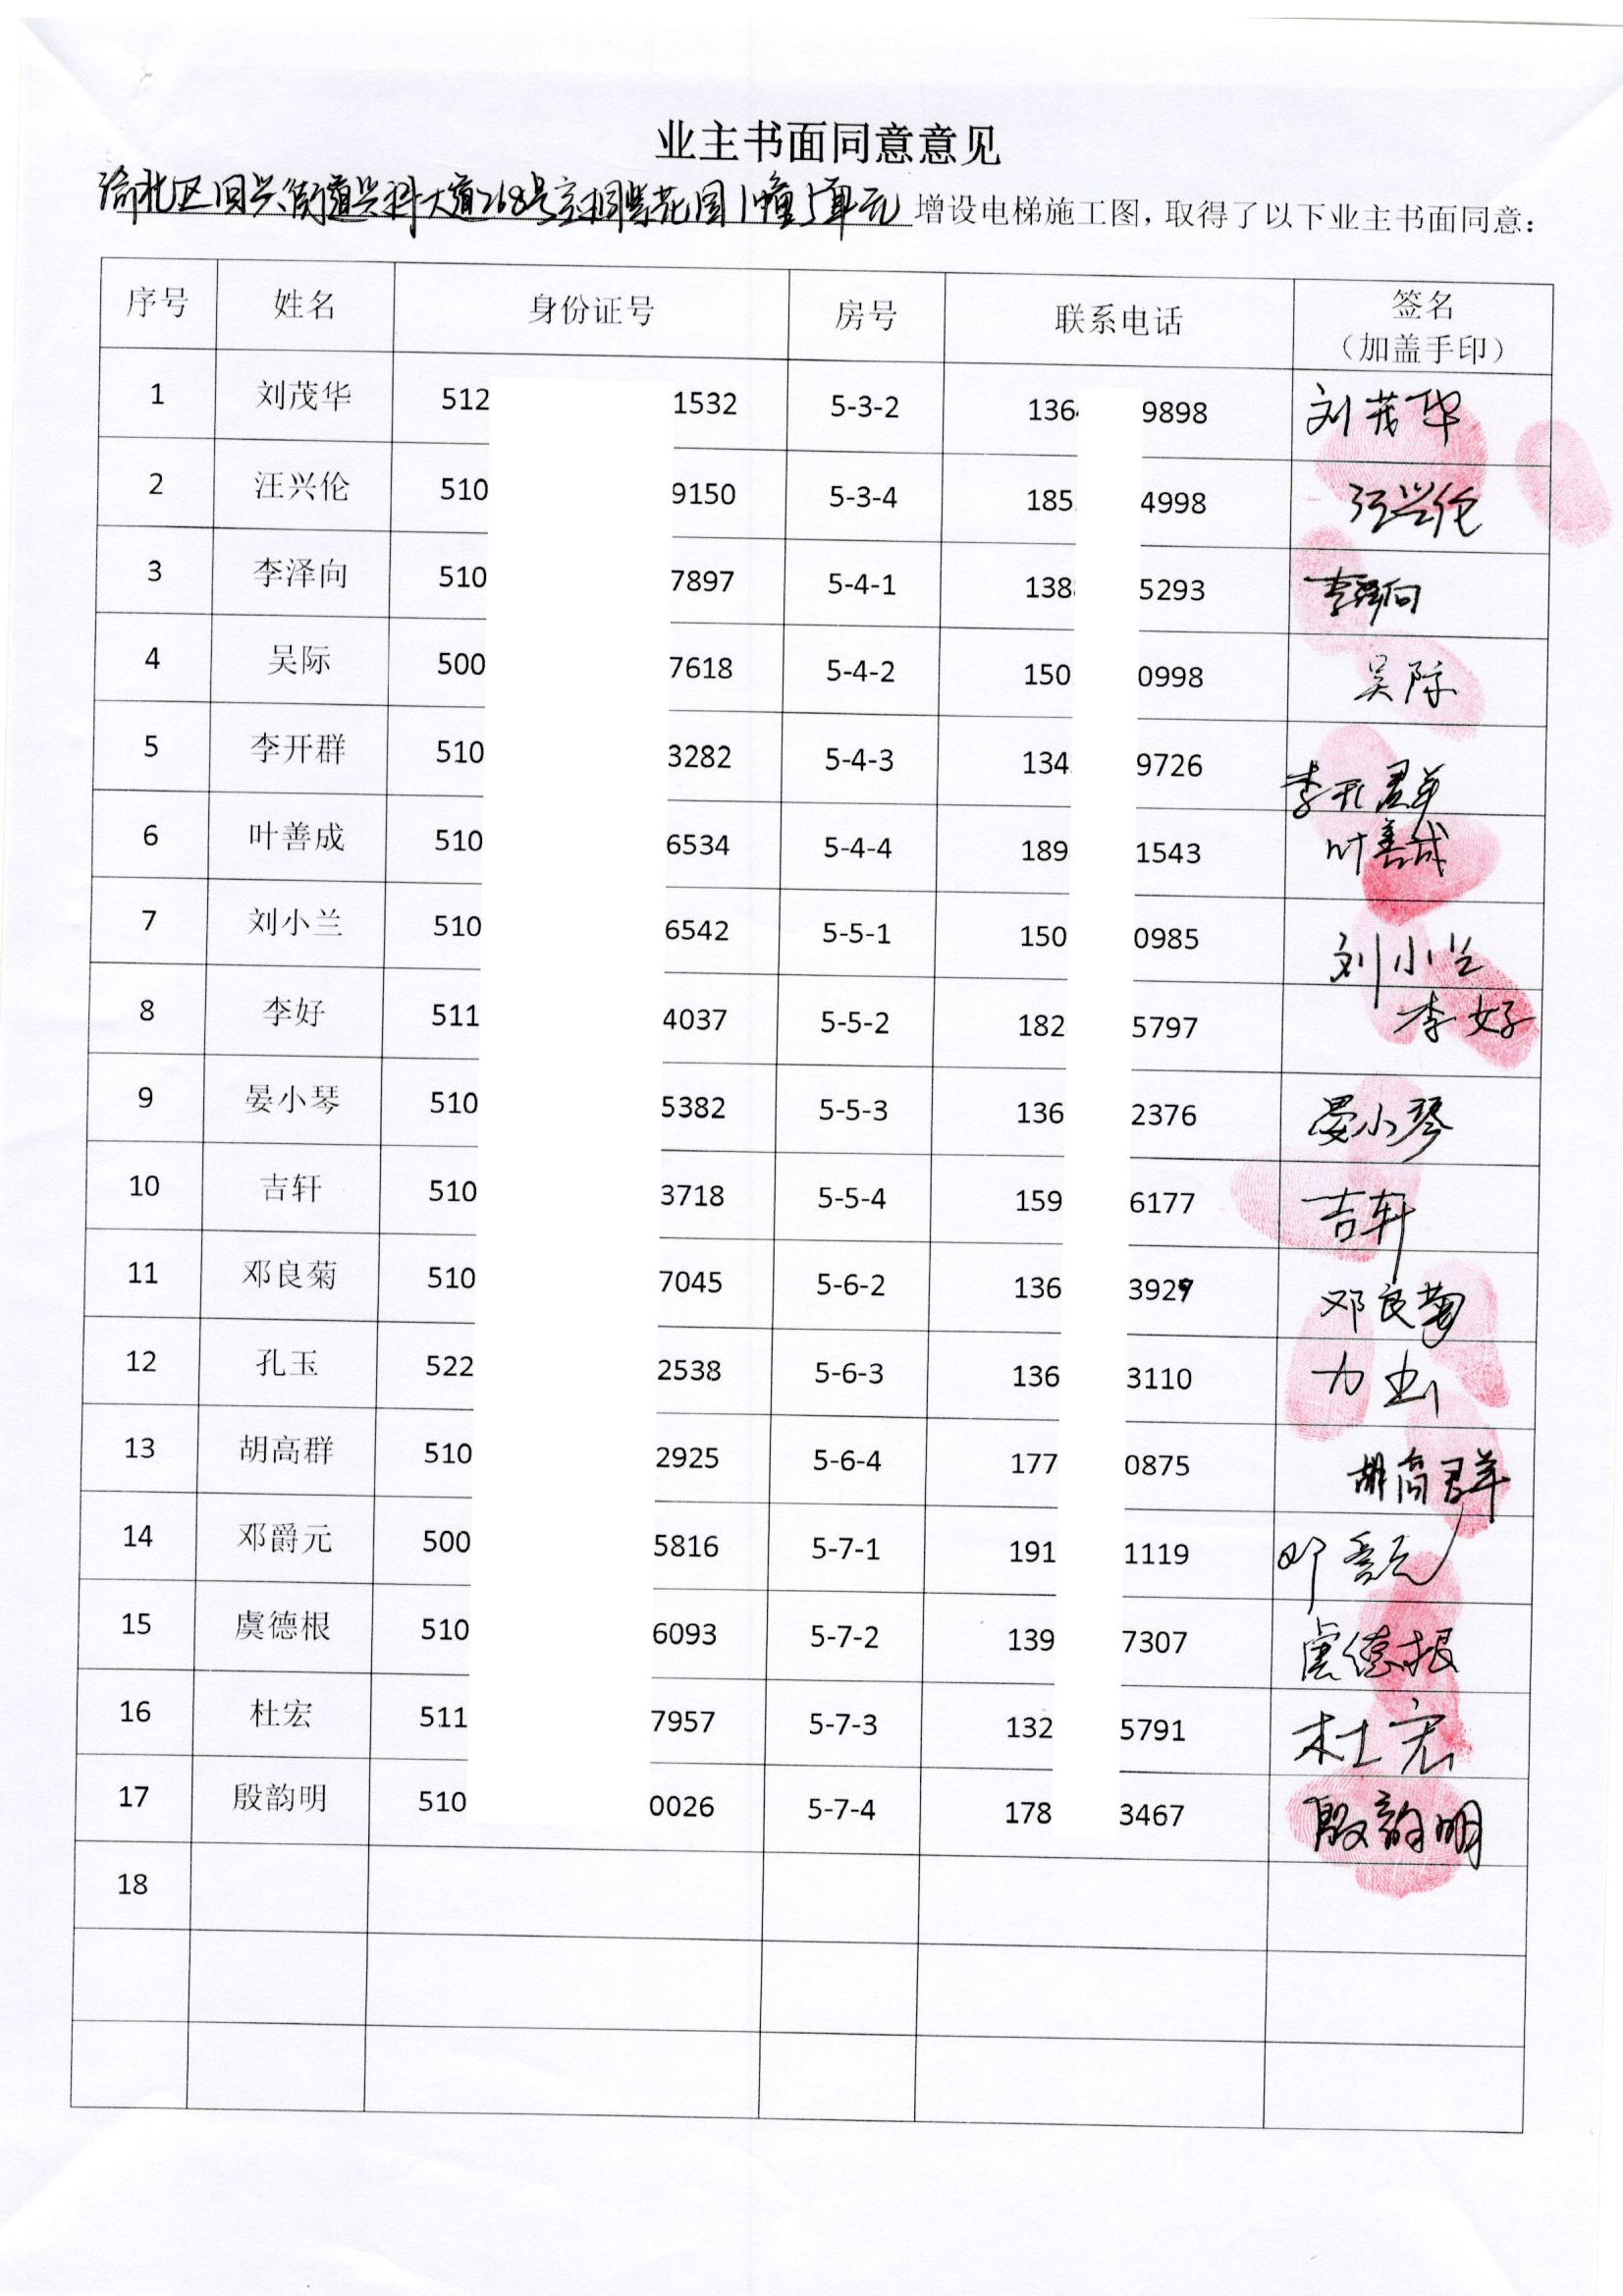 业主书面同意意见
渝北区回兴街道兴科大道268号京桐紫花园1幢5单元 增设电梯施工图，取得了以下业主书面同意：
序号 姓名 身份证号 房号 联系电话 签名
（加盖手印）
1 刘茂华 512 1532 5-3-2 136 9898 刘茂华
2 汪兴伦 510 9150 5-3-4 185 4998 汪兴伦
3 李泽向 510 7897 5-4-1 138 5293 李泽向
4 吴际 500 7618 5-4-2 150 0998 吴际
5 李开群 510 3282 5-4-3 134 9726 李开群
6 叶善成 510 6534 5-4-4 189 1543 叶善成
7 刘小兰 510 6542 5-5-1 150 0985 刘小兰
8 李好 511 4037 5-5-2 182 5797 李好
9 晏小琴 510 5382 5-5-3 136 2376 晏小琴
10 吉轩 510 3718 5-5-4 159 6177 吉轩
11 邓良菊 510 7045 5-6-2 136 3929 邓良菊
12 孔玉 522 2538 5-6-3 136 3110
13 胡高群 510 2925 5-6-4 177 0875 胡高群
14 邓爵元 500 5816 5-7-1 191 1119 邓爵元
15 虞德根 510 6093 5-7-2 139 7307 虞德根
16 杜宏 511 7957 5-7-3 132 5791 杜宏
17 殷韵明 510 0026 5-7-4 178 3467 殷韵明
18